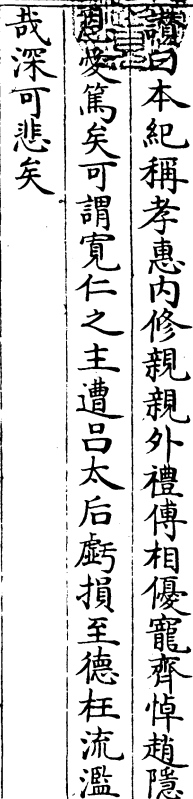 讃曰本紀稱孝惠内修親親外禮傅相優寵齊悼趙隱
恩愛篤矣可謂寬仁之主遭吕太后虧損至德枉流濫
哉深可悲矣